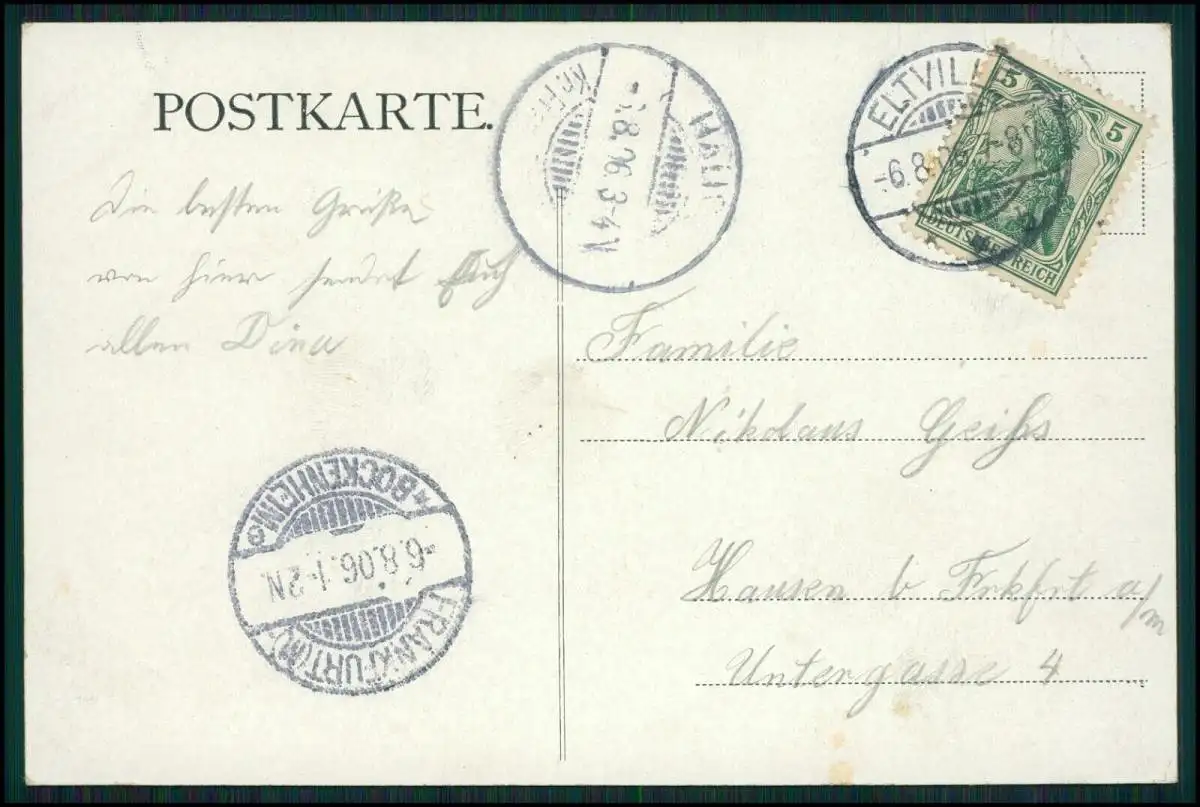 POSTKARTE.
Die besten Grüße
von hier sendet Euch
allen Dina
-6.8.06.3-4V
ELTVILL
-6.8.06. 7-8V
5 5
DEUTSCHES REICH
Familie
Nikolaus Geihs
Hausen b Frkfrt a/m
Untergasse 4
BOCKENHEIM
-6.8.06.1-2N.
FRANKFURT (M)